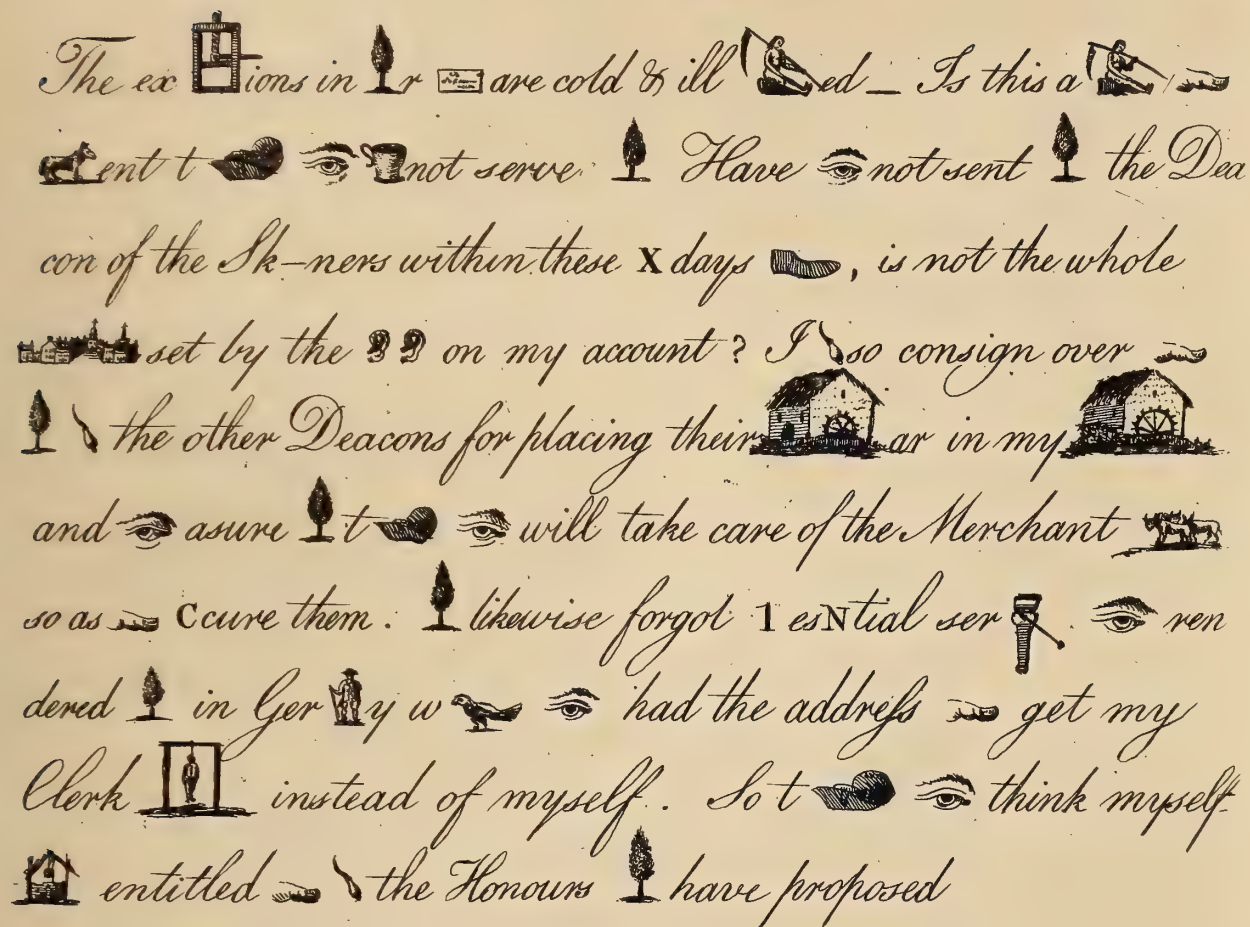 The ex ions in r are cold & ill ed — Is this a
ent t not serve. Have not sent the Dea
con of the Sk-ners within these X days , is not the whole
set by the on my account ? I so consign over
the other Deacons for placing their ar in my
and asure t will take care of the Merchant
so as Ccure them. likewise forgot 1 esNtial ser . ren
dered in Ger y w had the addreſs get my
Clerk instead of myself. So t think myself
entitled the Honours have proposed